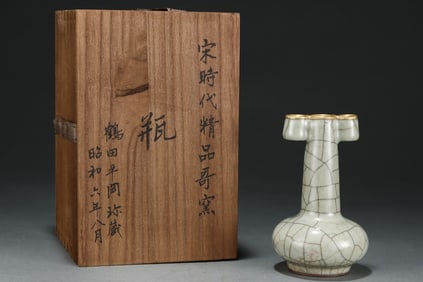 宋時代精品哥窯
瓶
鶴田平岡珍藏
昭和六年八月